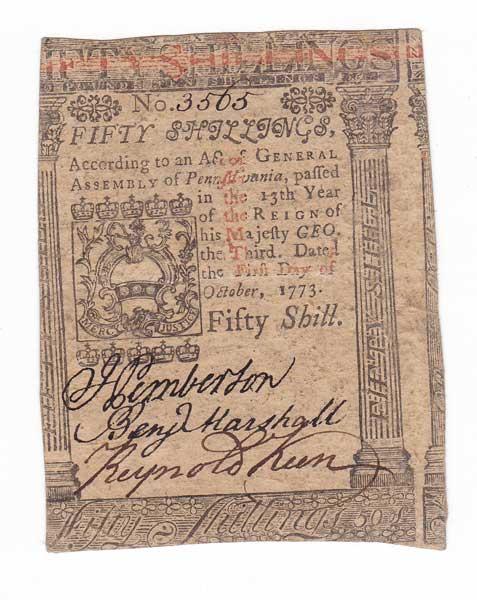 FIFTY SHILLINGS
No. 3565
FIFTY SHILLINGS,
According to an Act of GENERAL
ASSEMBLY of Pennsylvania, passed
in the 13th Year
of the REIGN of
his Majesty GEO.
the Third. Dated
the First Day of
October, 1773.
MERCY JUSTICE
Fifty Shill.
FIFTY SHILL
J Pemberton
Benj Marshall
Reynold Keen
Fifty Shillings 50s